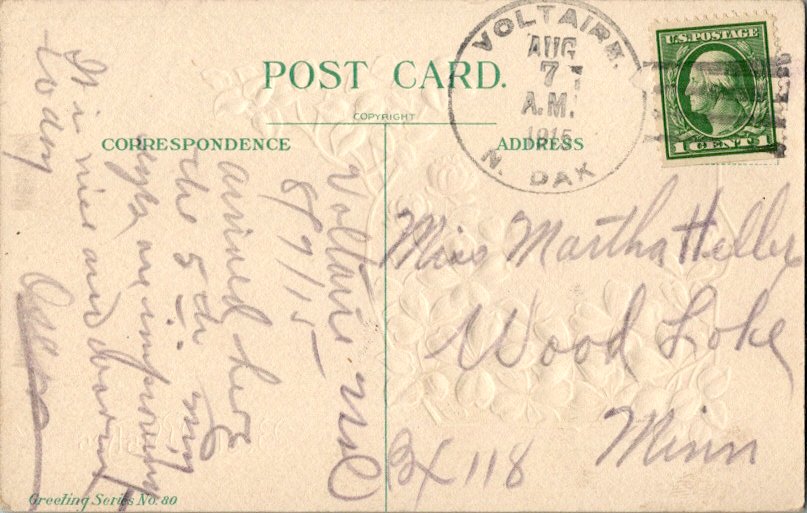 POST CARD.
COPYRIGHT
CORRESPONDENCE
ADDRESS
VOLTAIRE,
AUG
7
A.M.
1915
N. DAK
U.S. POSTAGE
1 CENT 1
Voltaire N.D
8/7/15
arrived here
the 5th. my
eyes are improving
It is nice and
today
Miss Martha Heller
Wood Lake
Minn
Bx 118
Greeting Series No. 80